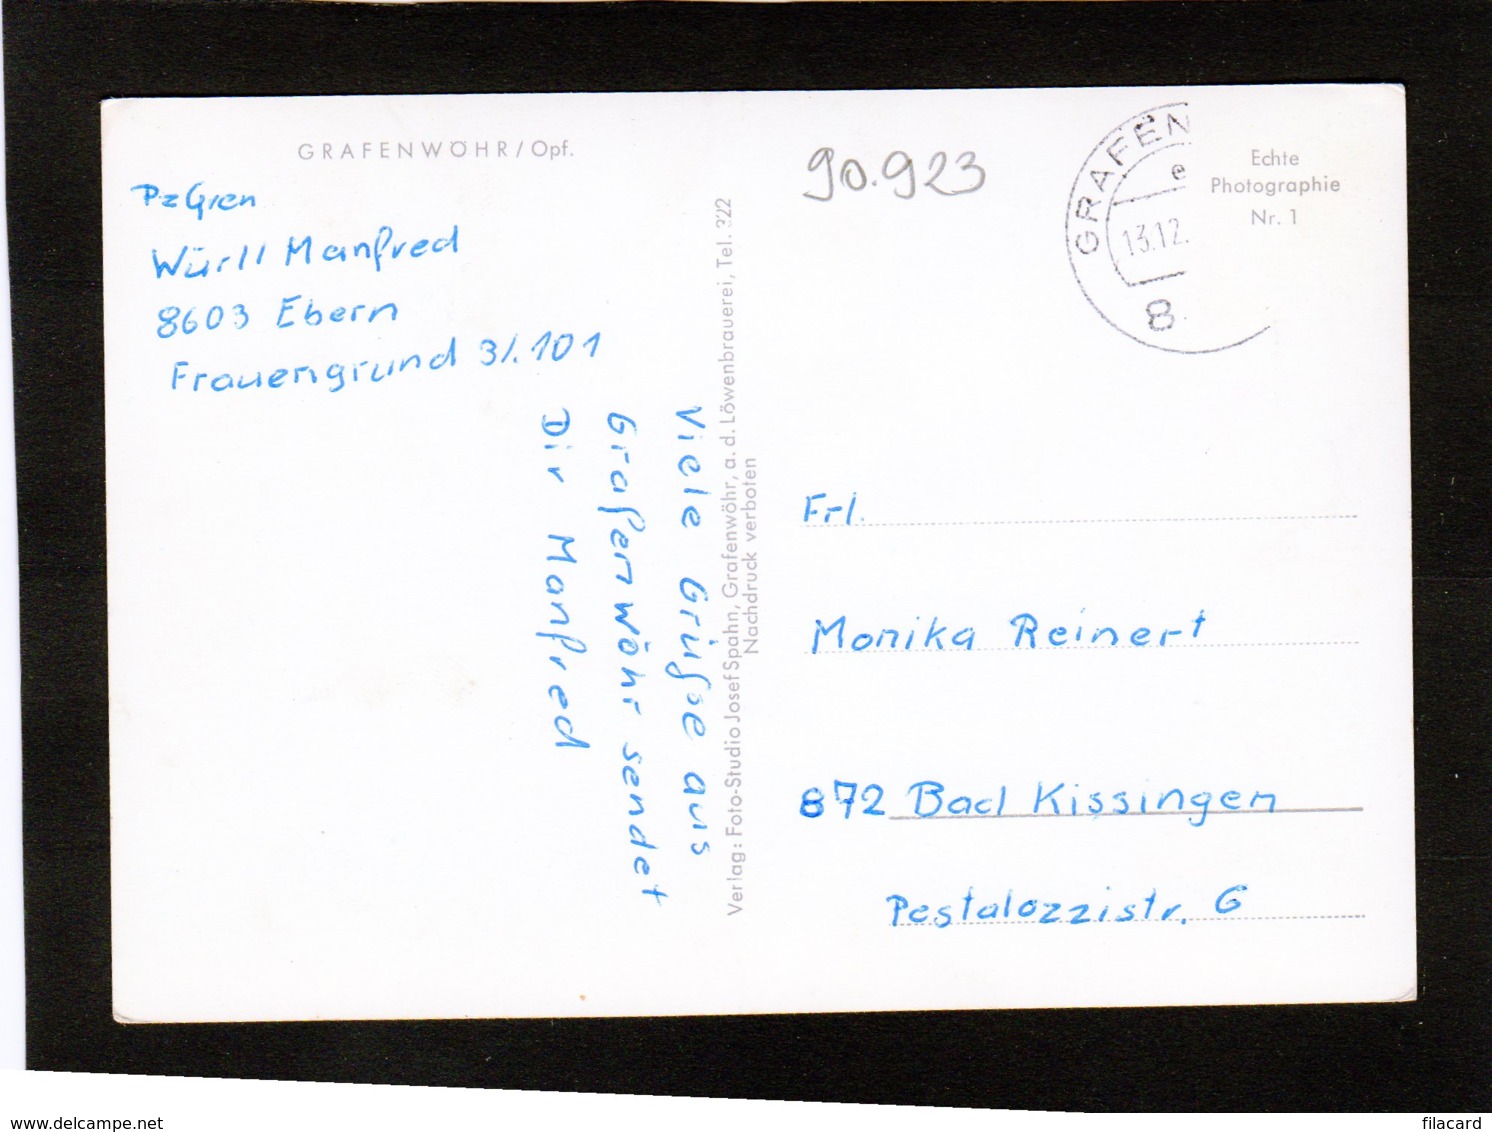 GRAFENWÖHR/Opf.
PzGren
Würll Manfred
8603 Ebern
Frauengrund 3/.101
Viele Grüße aus
Grafenwöhr sendet
Dir Manfred
Verlag: Foto-Studio Josef Spahn, Grafenwöhr, a. d. Löwenbrauerei, Tel. 322
Nachdruck verboten
90.923
GRAFEN
e
13.12.
8
Echte
Photographie
Nr. 1
Frl.
Monika Reinert
872 Bad Kissingen
Pestalozzistr. 6
delcampe.net
filacard